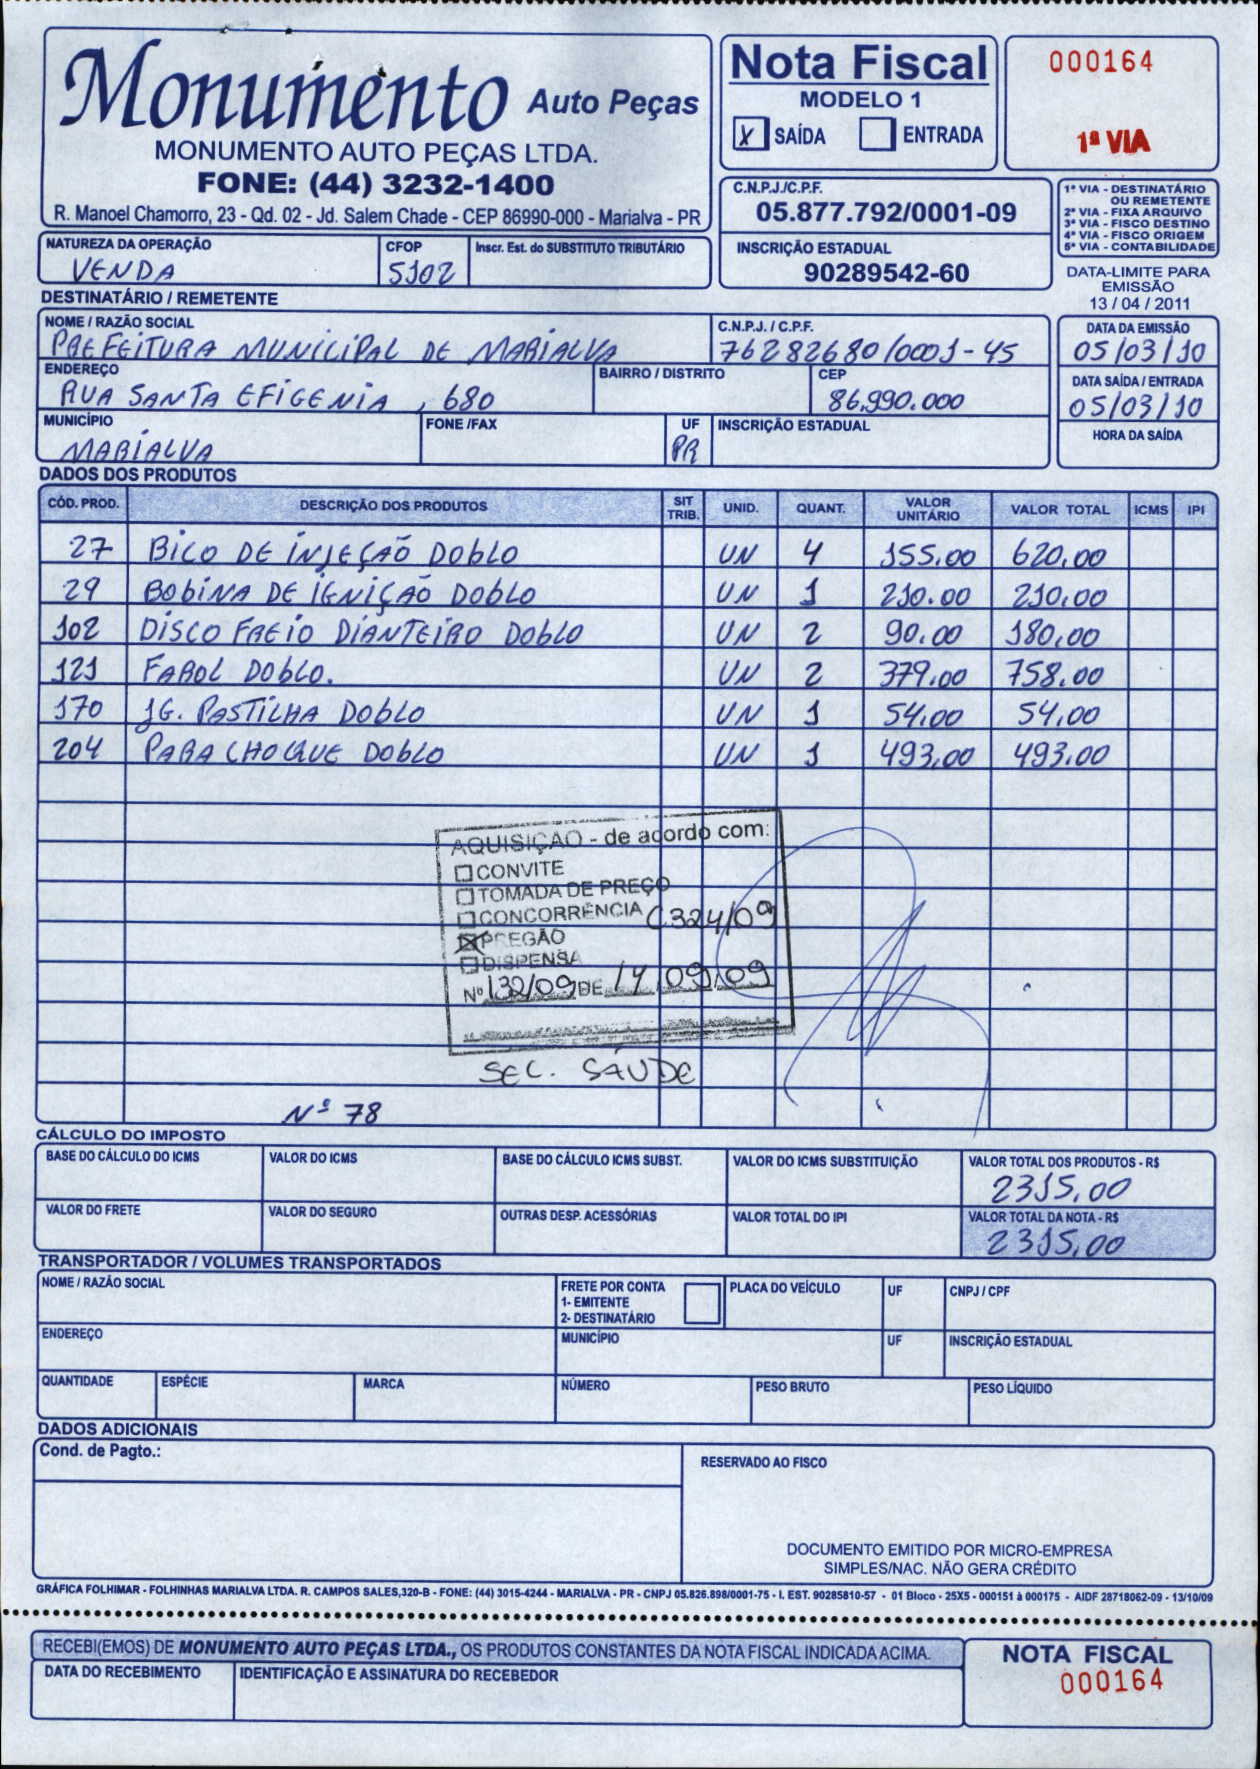 Monumento Auto Peças
MONUMENTO AUTO PEÇAS LTDA.
FONE: (44) 3232-1400
R. Manoel Chamorro, 23 - Qd. 02 - Jd. Salem Chade - CEP 86990-000 - Marialva - PR
Nota Fiscal
MODELO 1
X SAÍDA ENTRADA
000164
1ª VIA
C.N.P.J./C.P.F.
05.877.792/0001-09
INSCRIÇÃO ESTADUAL
90289542-60
1ª VIA - DESTINATÁRIO
OU REMETENTE
2ª VIA - FIXA ARQUIVO
3ª VIA - FISCO DESTINO
4ª VIA - FISCO ORIGEM
5ª VIA - CONTABILIDADE
DATA-LIMITE PARA
EMISSÃO
13 / 04 / 2011
NATUREZA DA OPERAÇÃO CFOP Inscr. Est. do SUBSTITUTO TRIBUTÁRIO
VENDA 5102
DESTINATÁRIO / REMETENTE
NOME / RAZÃO SOCIAL C.N.P.J. / C.P.F. DATA DA EMISSÃO
PREFEITURA MUNICIPAL DE MARIALVA 76282680/0001-45 05/03/10
ENDEREÇO BAIRRO / DISTRITO CEP DATA SAÍDA / ENTRADA
RUA SANTA EFIGENIA, 680 86.990.000 05/03/10
MUNICÍPIO FONE /FAX UF INSCRIÇÃO ESTADUAL HORA DA SAÍDA
MARIALVA PR
DADOS DOS PRODUTOS
CÓD. PROD. DESCRIÇÃO DOS PRODUTOS SIT TRIB. UNID. QUANT. VALOR UNITÁRIO VALOR TOTAL ICMS IPI
27 BICO DE INJEÇÃO DOBLO UN 4 155,00 620,00
29 BOBINA DE IGNIÇÃO DOBLO UN 1 210.00 210,00
102 DISCO FREIO DIANTEIRO DOBLO UN 2 90,00 180,00
121 FAROL DOBLO. UN 2 379,00 758,00
170 JG. PASTILHA DOBLO UN 1 54,00 54,00
204 PARA CHOQUE DOBLO UN 1 493,00 493,00
AQUISIÇÃO - de acordo com:
CONVITE
TOMADA DE PREÇO
CONCORRÊNCIA C324/09
X PREGÃO
DISPENSA
Nº 132/09 DE 14/09/09
SEC. SAÚDE
Nº 78
CÁLCULO DO IMPOSTO
BASE DO CÁLCULO DO ICMS VALOR DO ICMS BASE DO CÁLCULO ICMS SUBST. VALOR DO ICMS SUBSTITUIÇÃO VALOR TOTAL DOS PRODUTOS - R$
2315,00
VALOR DO FRETE VALOR DO SEGURO OUTRAS DESP. ACESSÓRIAS VALOR TOTAL DO IPI VALOR TOTAL DA NOTA - R$
2315,00
TRANSPORTADOR / VOLUMES TRANSPORTADOS
NOME / RAZÃO SOCIAL FRETE POR CONTA PLACA DO VEÍCULO UF CNPJ / CPF
1- EMITENTE
2- DESTINATÁRIO
ENDEREÇO MUNICÍPIO UF INSCRIÇÃO ESTADUAL
QUANTIDADE ESPÉCIE MARCA NÚMERO PESO BRUTO PESO LÍQUIDO
DADOS ADICIONAIS
Cond. de Pagto.:
RESERVADO AO FISCO
DOCUMENTO EMITIDO POR MICRO-EMPRESA
SIMPLES/NAC. NÃO GERA CRÉDITO
GRÁFICA FOLHIMAR - FOLHINHAS MARIALVA LTDA. R. CAMPOS SALES,320-B - FONE: (44) 3015-4244 - MARIALVA - PR - CNPJ 05.826.898/0001-75 - I. EST. 90285810-57 - 01 Bloco - 25X5 - 000151 à 000175 - AIDF 28718062-09 - 13/10/09
RECEBI(EMOS) DE MONUMENTO AUTO PEÇAS LTDA., OS PRODUTOS CONSTANTES DA NOTA FISCAL INDICADA ACIMA.
DATA DO RECEBIMENTO IDENTIFICAÇÃO E ASSINATURA DO RECEBEDOR
NOTA FISCAL
000164